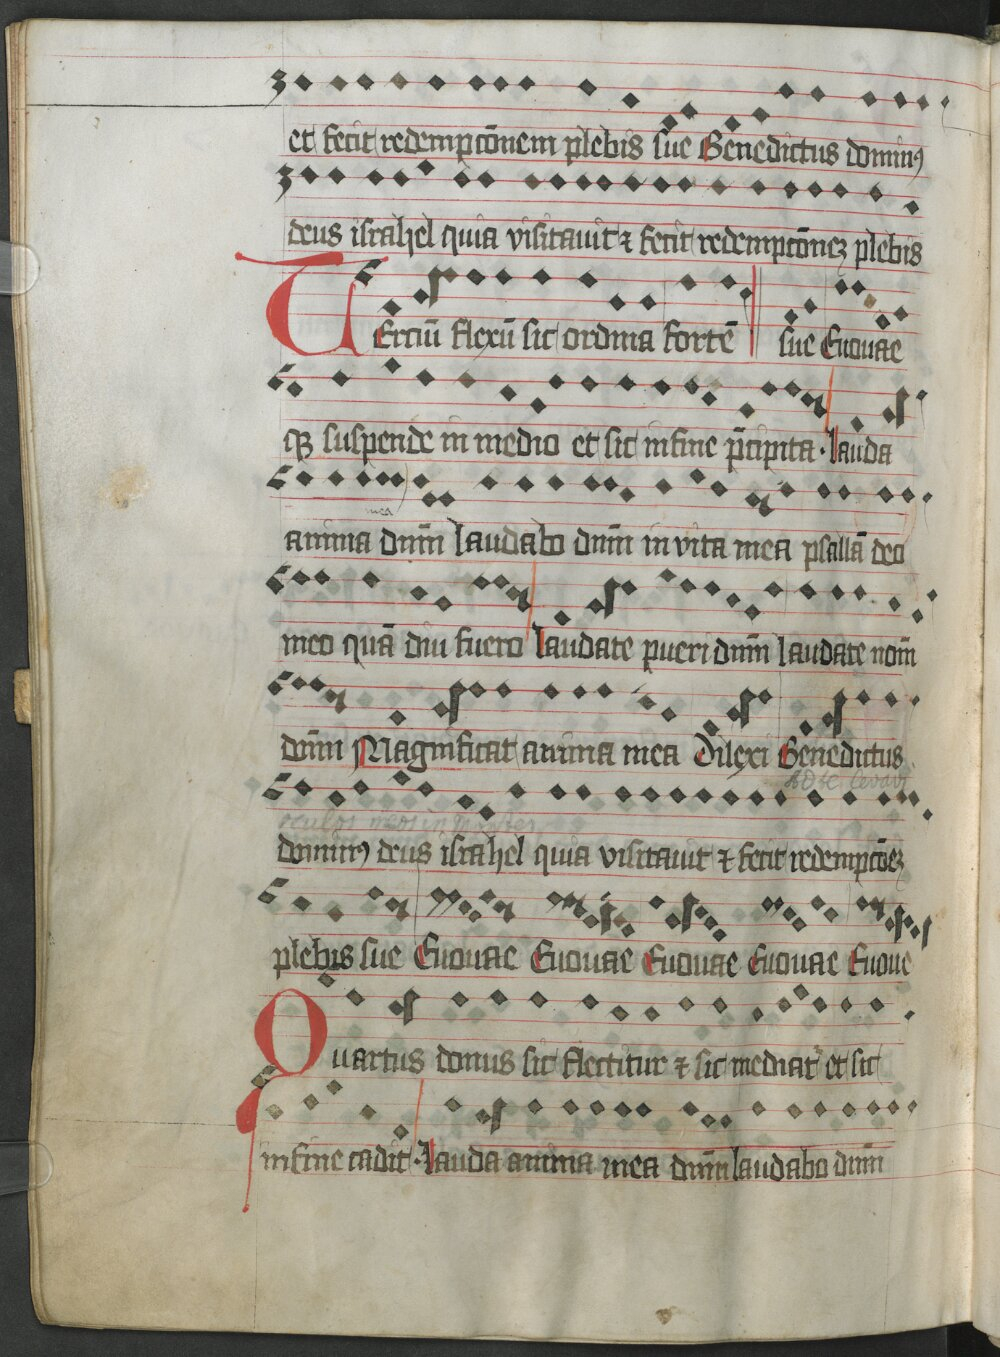 et fecit redempcōnem plebis sue Benedictus dominꝰ
deus israhel quia visitauit ⁊ fecit redemptōneꝫ plebis
Terciū flexū sic ordina fortē sue Euouae
qꝫ suspende in medio et sic in fine p̄cipita · lauda
anima dn̄m laudabo dn̄m in vita mea psallā deo
mea
meo quā diu fuero laudate pueri dn̄m laudate nom̄
dn̄m Magnificat anima mea Dilexi Benedictus
Ad te levavi
oculos meos in
dominꝰ deus israhel quia visitauit ⁊ fecit redempcōeꝫ
plebis sue Euouae Euouae Euouae Euouae Euoue
Quartus donus sic flectitur ⁊ sic mediat̄ et sic
in fine cadit · Lauda anima mea dn̄m laudabo dn̄m